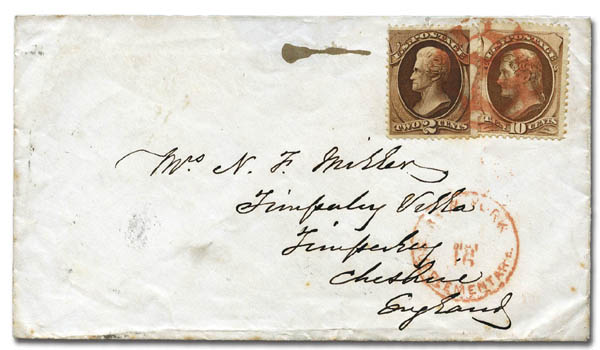 U.S. POSTAGE
TWO 2 CENTS
U.S. POSTAGE
10 CENTS
Mrs N. F. Miller
Timperley Villa
Timperley
Cheshire
England
NEW YORK
SUPPLEMENTARY